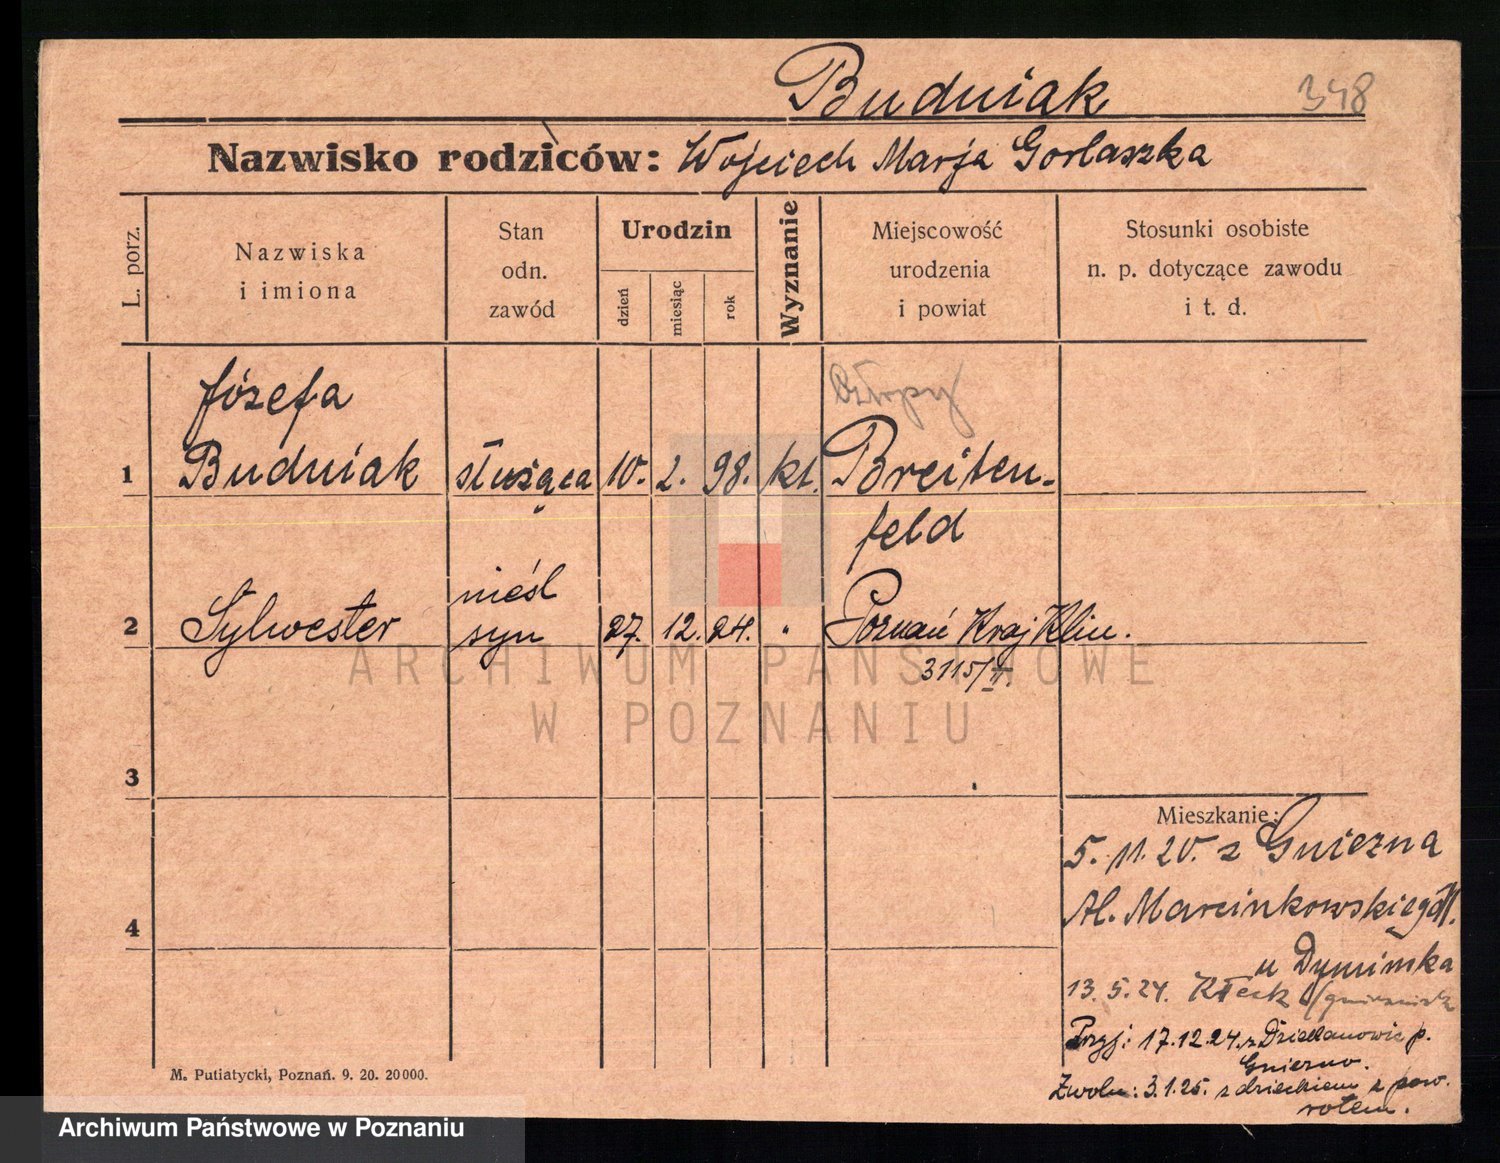 Budniak 348
Nazwisko rodziców: Wojciech Marja Gorlaszka
L. porz.
Nazwiska
i imiona
Stan
odn.
zawód
Urodzin
dzień
miesiąc
rok
Wyznanie
Miejscowość
urodzenia
i powiat
Stosunki osobiste
n. p. dotyczące zawodu
i t. d.
Józefa
1 Budniak służąca 10. 2. 98. kt. Breiten-
feld
nieśl
2 Sylwester syn 27. 12. 24. " Poznań Kraj Klin.
3115/II.
ARCHIWUM PAŃSTWOWE
W POZNANIU
3
Mieszkanie:
5. 11. 20. z Gniezna
Al. Marcinkowskiego 11.
4
u Dymińska
13. 5. 24. Kłeck
Przyj: 17.12.24. z Dziekanowic p.
Gniezno.
Zwoln: 3.1.25. z dzieckiem z pow.
rotem.
M. Putiatycki, Poznań. 9. 20. 20000.
Archiwum Państwowe w Poznaniu